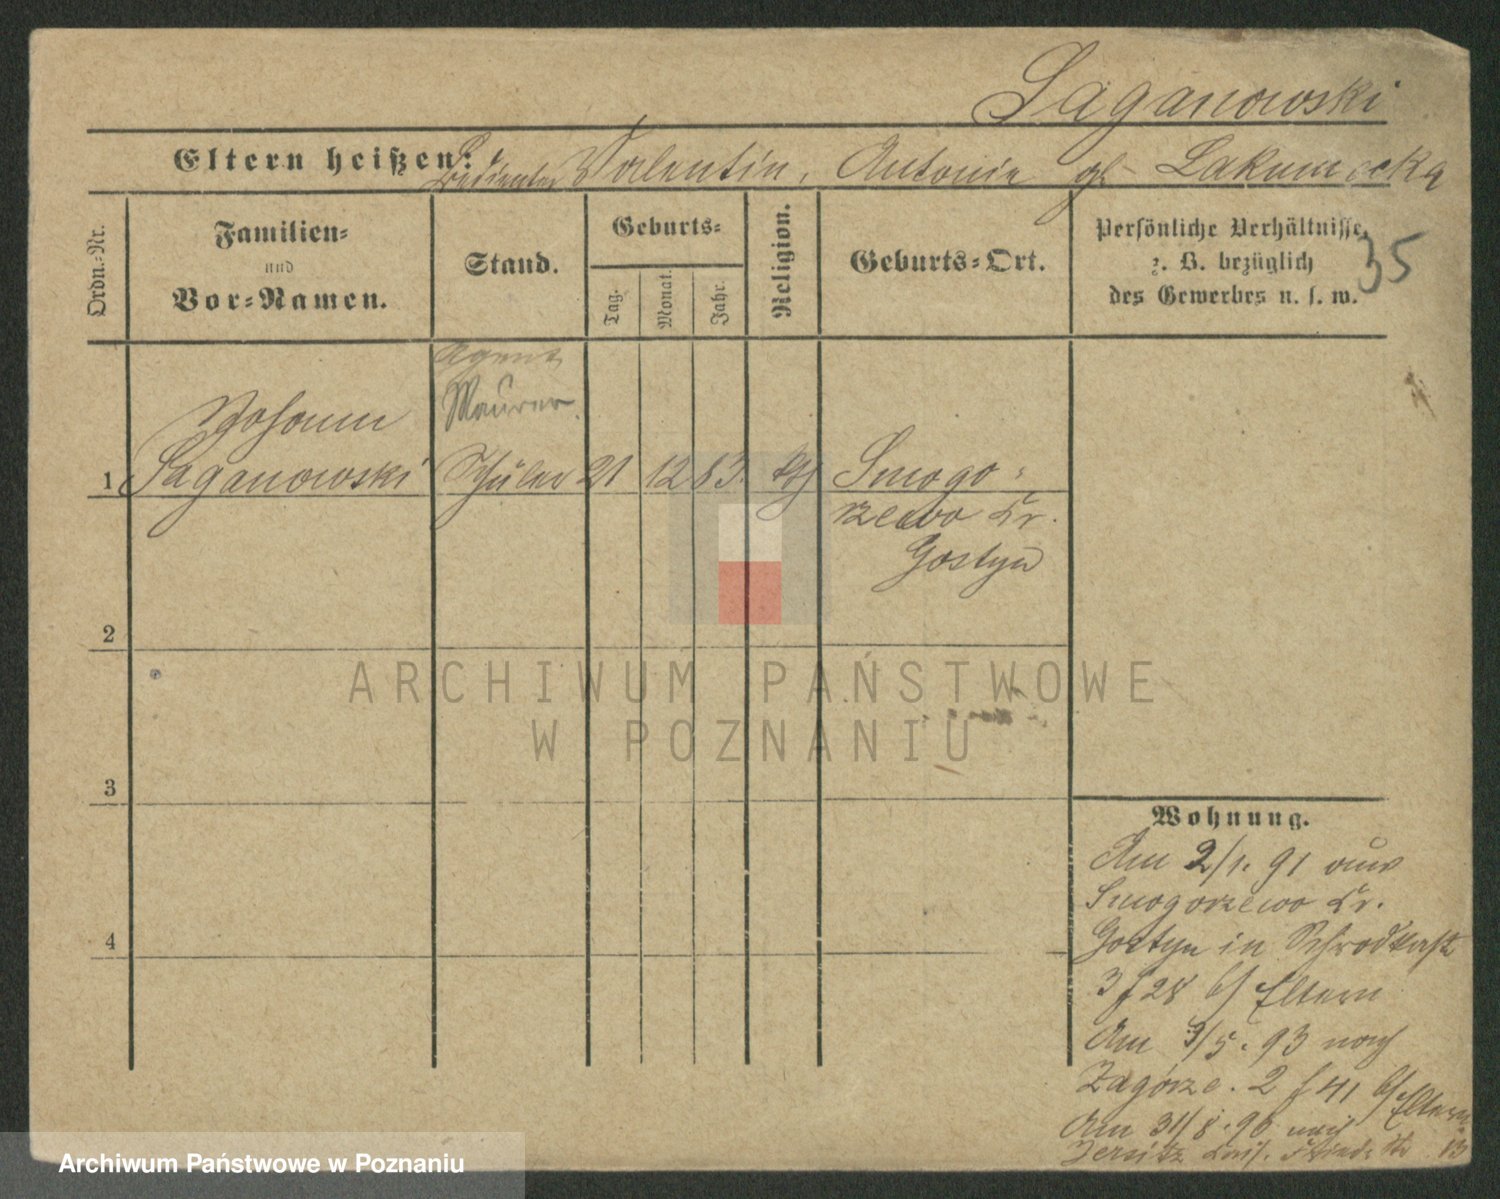 Saganowski
Eltern heißen: Bedienter Valentin, Antonie gb Lakumecka
Ordn.-Nr.
Familien-
und
Vor-Namen.
Stand.
Geburts-
Tag.
Monat.
Jahr.
Religion.
Geburts-Ort.
Persönliche Verhältnisse,
z. B. bezüglich
des Gewerbes u. s. w.
35
Agent
Maurer
Johann
1 Saganowski Schüler 21 12 83. kth Smogo-
rzewo Kr.
Gostyn
2
3
4
Wohnung.
Am 2/1. 91 aus
Smogorzewo Kr.
Gostyn in Schrodkastr
3 f 28 b/ Eltern
Am 3/5. 93 nach
Zagórze. 2 f 41 b/ Eltern
Am 31/8. 96 nach
Jersitz Kais. Friedr. Str. 13
ARCHIWUM PAŃSTWOWE
W POZNANIU
Archiwum Państwowe w Poznaniu